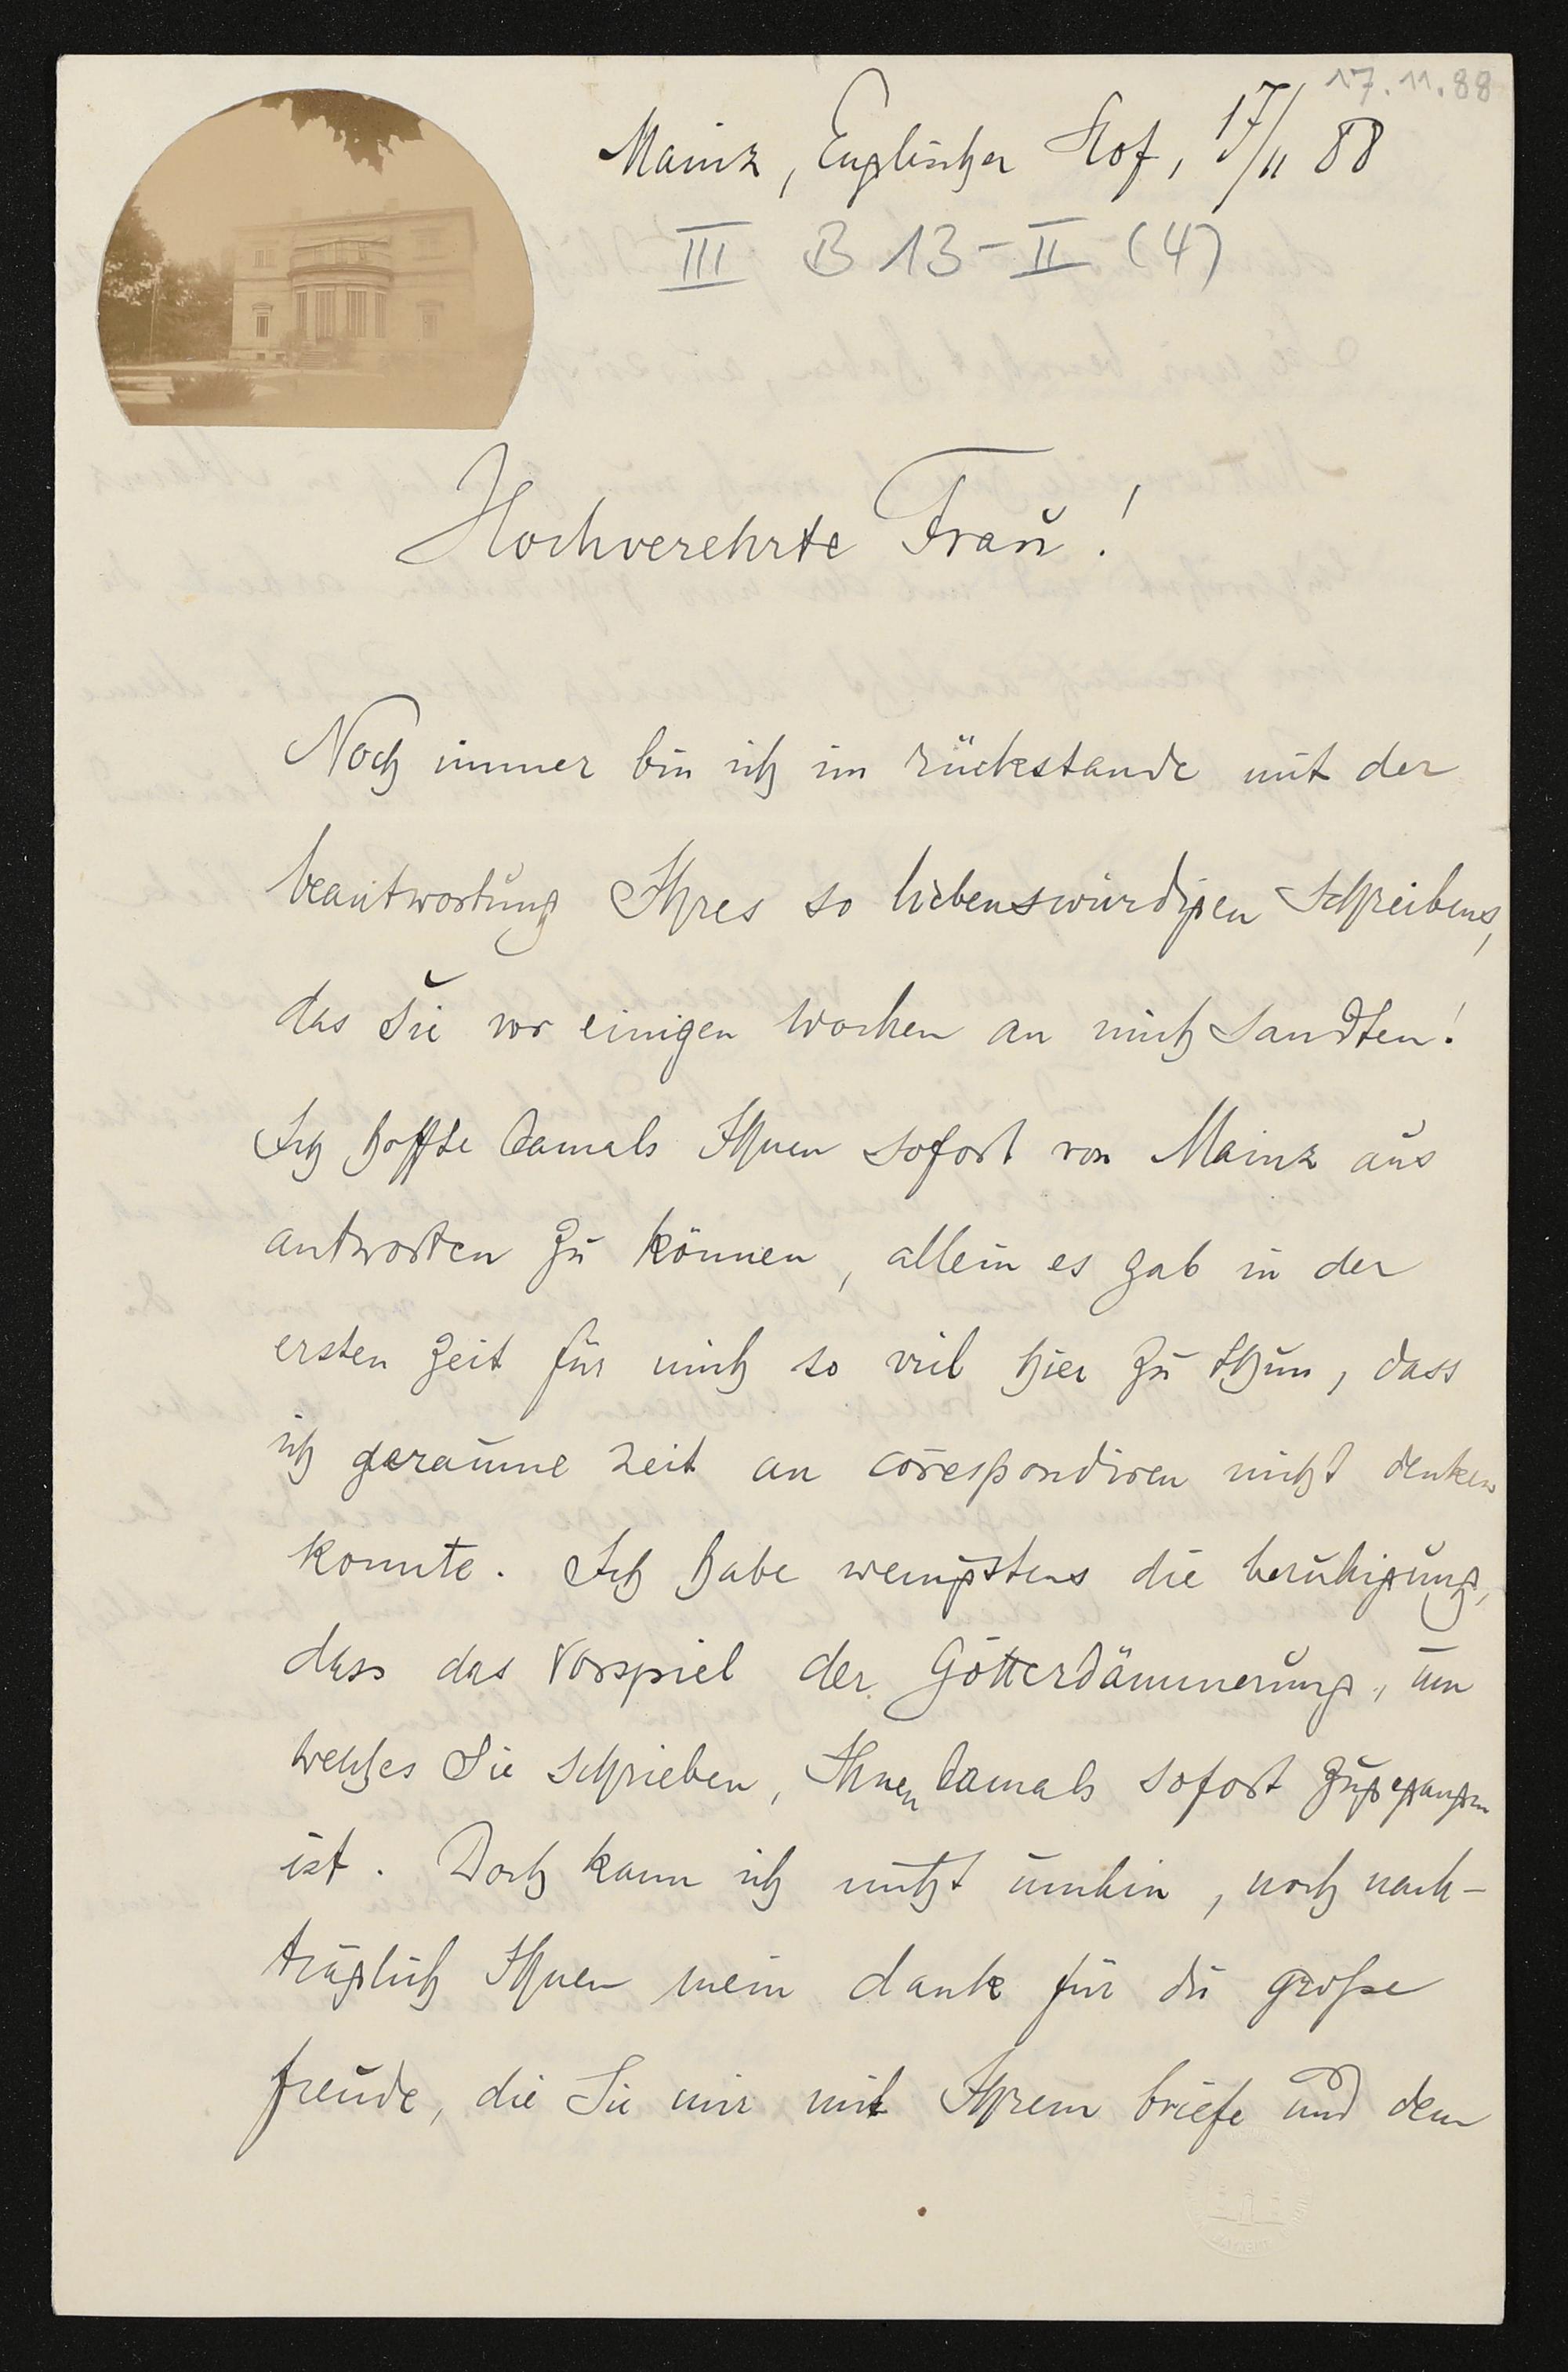 17.11.88
Mainz, Englischer Hof, 17/11 88
III B 13-II (4)
Hochverehrte Frau!
Noch immer bin ich im rückstande mit der
beantwortung Ihres so liebenswürdigen Schreibens,
das Sie vor einigen wochen an mich sandten!
Ich hoffte damals Ihnen sofort von Mainz aus
antworten zu können, allein es gab in der
ersten zeit für mich so viel hier zu thun, dass
ich geraume zeit an corespondiren nicht denken
konnte. Ich habe wenigstens die beruhigung,
dass das Vorspiel der Götterdämmerung, um
welches Sie schrieben, Ihnen damals sofort zugegangen
ist. Doch kann ich nicht umhin, noch nach-
träglich Ihnen mein dank für die große
freude, die Sie mir mit Ihrem briefe und dem